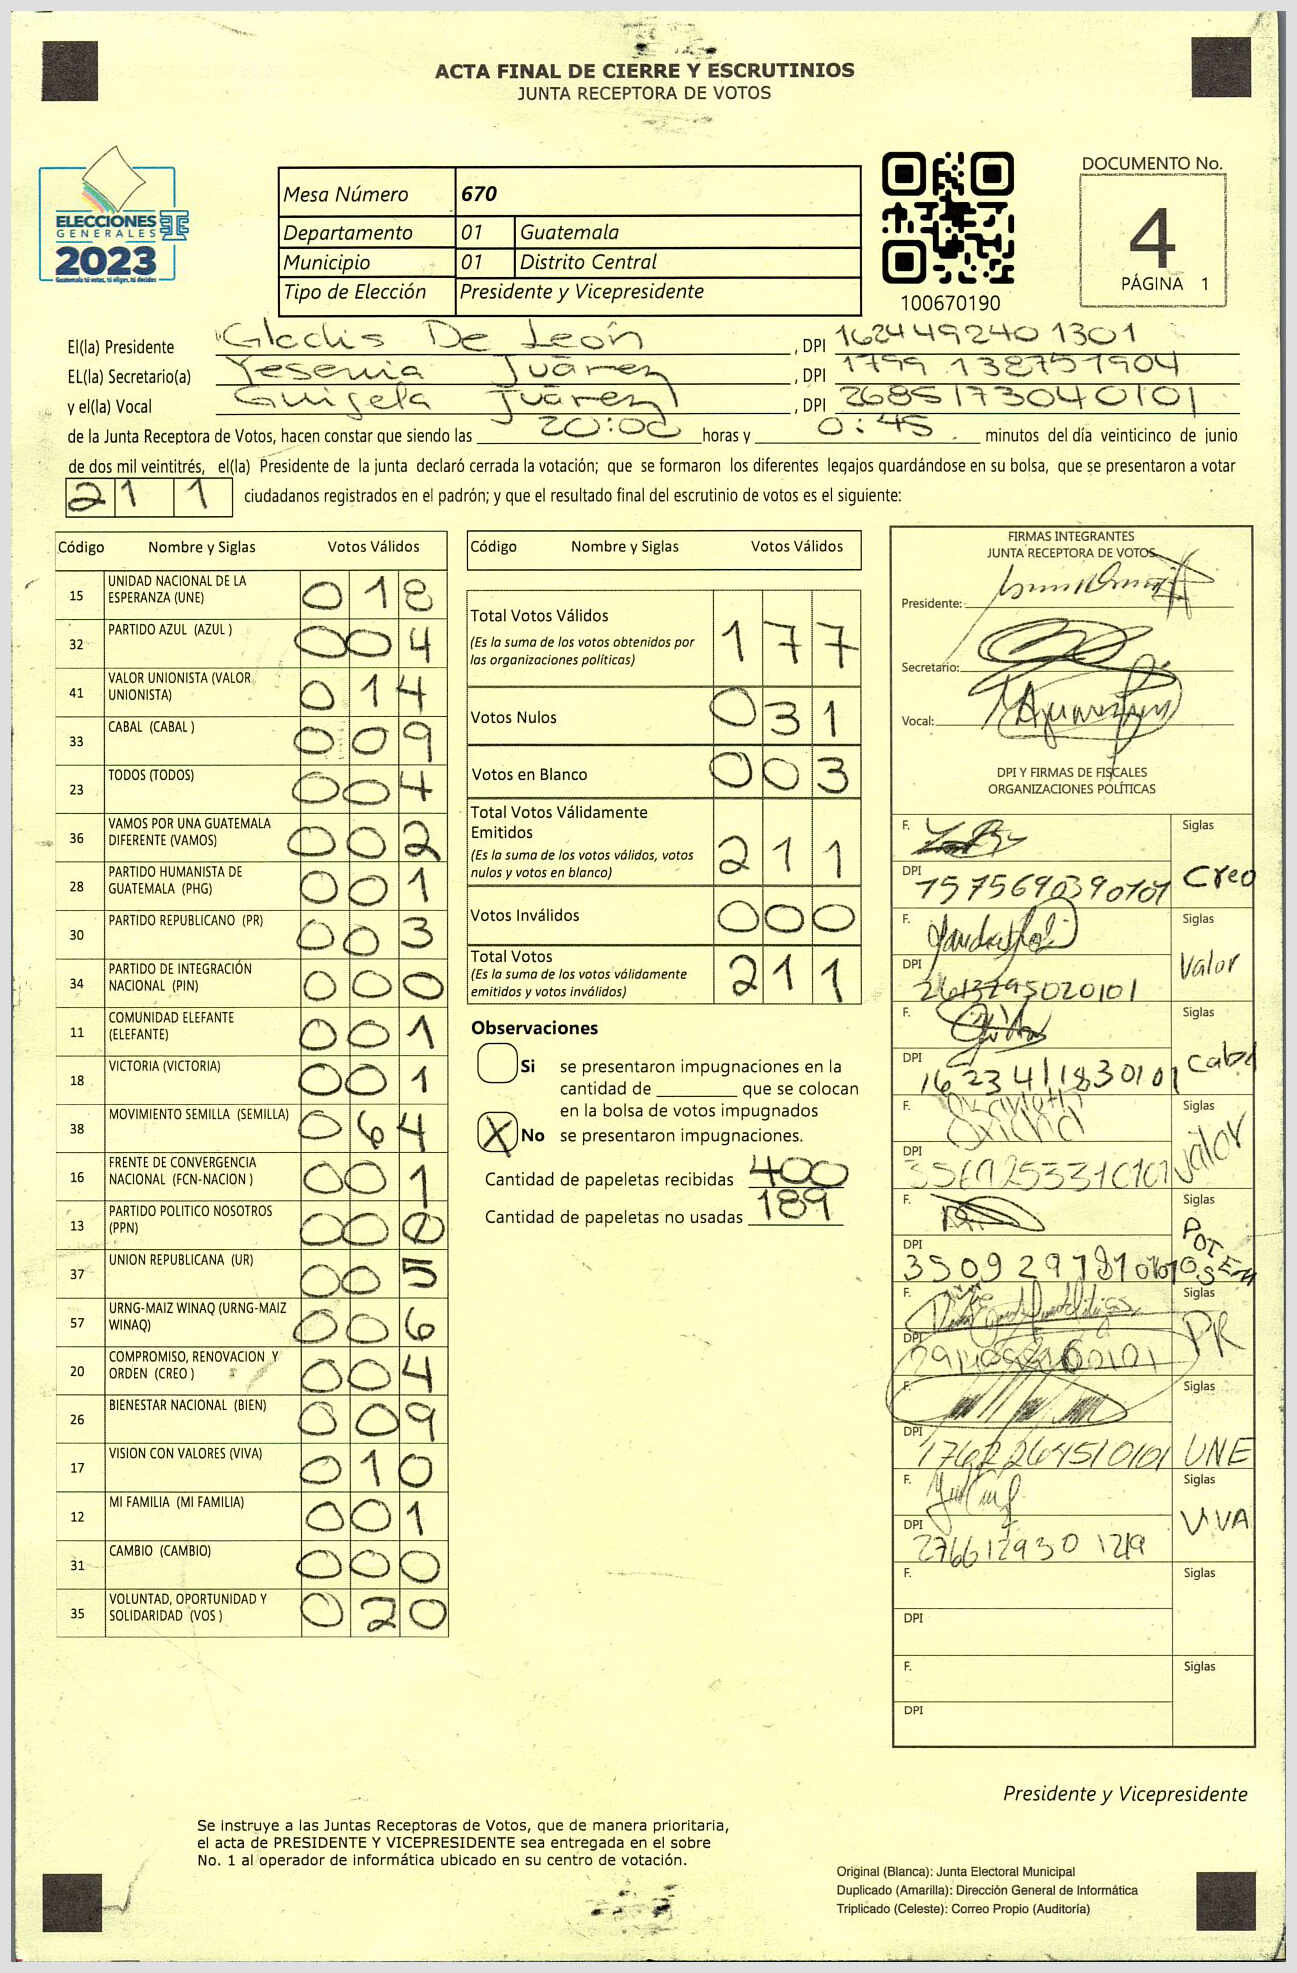 ACTA FINAL DE CIERRE Y ESCRUTINIOS
JUNTA RECEPTORA DE VOTOS
ELECCIONES
GENERALES
2023
Guatemala tú votas, tú eliges, tú decides
Mesa Número 670
Departamento 01 Guatemala
Municipio 01 Distrito Central
Tipo de Elección Presidente y Vicepresidente
100670190
DOCUMENTO No.
4
PÁGINA 1
El(la) Presidente Gladis De León, DPI 1624492401301
EL(la) Secretario(a) Yesenia Juárez, DPI 1799 138751904
y el(la) Vocal Guisela Juárez, DPI 2685173040101
de la Junta Receptora de Votos, hacen constar que siendo las 20:00 horas y 0:45 minutos del día veinticinco de junio
de dos mil veintitrés, el(la) Presidente de la junta declaró cerrada la votación; que se formaron los diferentes legajos guardándose en su bolsa, que se presentaron a votar
211 ciudadanos registrados en el padrón; y que el resultado final del escrutinio de votos es el siguiente:
Código Nombre y Siglas Votos Válidos
15 UNIDAD NACIONAL DE LA ESPERANZA (UNE) 018
32 PARTIDO AZUL (AZUL ) 004
41 VALOR UNIONISTA (VALOR UNIONISTA) 014
33 CABAL (CABAL ) 009
23 TODOS (TODOS) 004
36 VAMOS POR UNA GUATEMALA DIFERENTE (VAMOS) 002
28 PARTIDO HUMANISTA DE GUATEMALA (PHG) 001
30 PARTIDO REPUBLICANO (PR) 003
34 PARTIDO DE INTEGRACIÓN NACIONAL (PIN) 000
11 COMUNIDAD ELEFANTE (ELEFANTE) 001
18 VICTORIA (VICTORIA) 001
38 MOVIMIENTO SEMILLA (SEMILLA) 064
16 FRENTE DE CONVERGENCIA NACIONAL (FCN-NACION ) 001
13 PARTIDO POLITICO NOSOTROS (PPN) 000
37 UNION REPUBLICANA (UR) 005
57 URNG-MAIZ WINAQ (URNG-MAIZ WINAQ) 006
20 COMPROMISO, RENOVACION Y ORDEN (CREO ) 004
26 BIENESTAR NACIONAL (BIEN) 009
17 VISION CON VALORES (VIVA) 010
12 MI FAMILIA (MI FAMILIA) 001
31 CAMBIO (CAMBIO) 000
35 VOLUNTAD, OPORTUNIDAD Y SOLIDARIDAD (VOS ) 020
Código Nombre y Siglas Votos Válidos
Total Votos Válidos 177
(Es la suma de los votos obtenidos por
las organizaciones políticas)
Votos Nulos 031
Votos en Blanco 003
Total Votos Válidamente
Emitidos 211
(Es la suma de los votos válidos, votos
nulos y votos en blanco)
Votos Inválidos 000
Total Votos 211
(Es la suma de los votos válidamente
emitidos y votos inválidos)
Observaciones
Si se presentaron impugnaciones en la
cantidad de ________ que se colocan
en la bolsa de votos impugnados
X No se presentaron impugnaciones.
Cantidad de papeletas recibidas 400
Cantidad de papeletas no usadas 189
FIRMAS INTEGRANTES
JUNTA RECEPTORA DE VOTOS
Presidente:
Secretario:
Vocal:
DPI Y FIRMAS DE FISCALES
ORGANIZACIONES POLÍTICAS
F. Siglas
DPI 1575690390101 Creo
F. Siglas
DPI 2613795020101 Valor
F. Siglas
DPI 1623411830101 Cabal
F. Siglas
DPI Valor
F. Siglas
DPI
F. Siglas
DPI PR
F. Siglas
DPI 1762264510101 UNE
F. Siglas
DPI VIVA
F. Siglas
DPI
F. Siglas
DPI
Presidente y Vicepresidente
Se instruye a las Juntas Receptoras de Votos, que de manera prioritaria,
el acta de PRESIDENTE Y VICEPRESIDENTE sea entregada en el sobre
No. 1 al operador de informática ubicado en su centro de votación.
Original (Blanca): Junta Electoral Municipal
Duplicado (Amarilla): Dirección General de Informática
Triplicado (Celeste): Correo Propio (Auditoría)